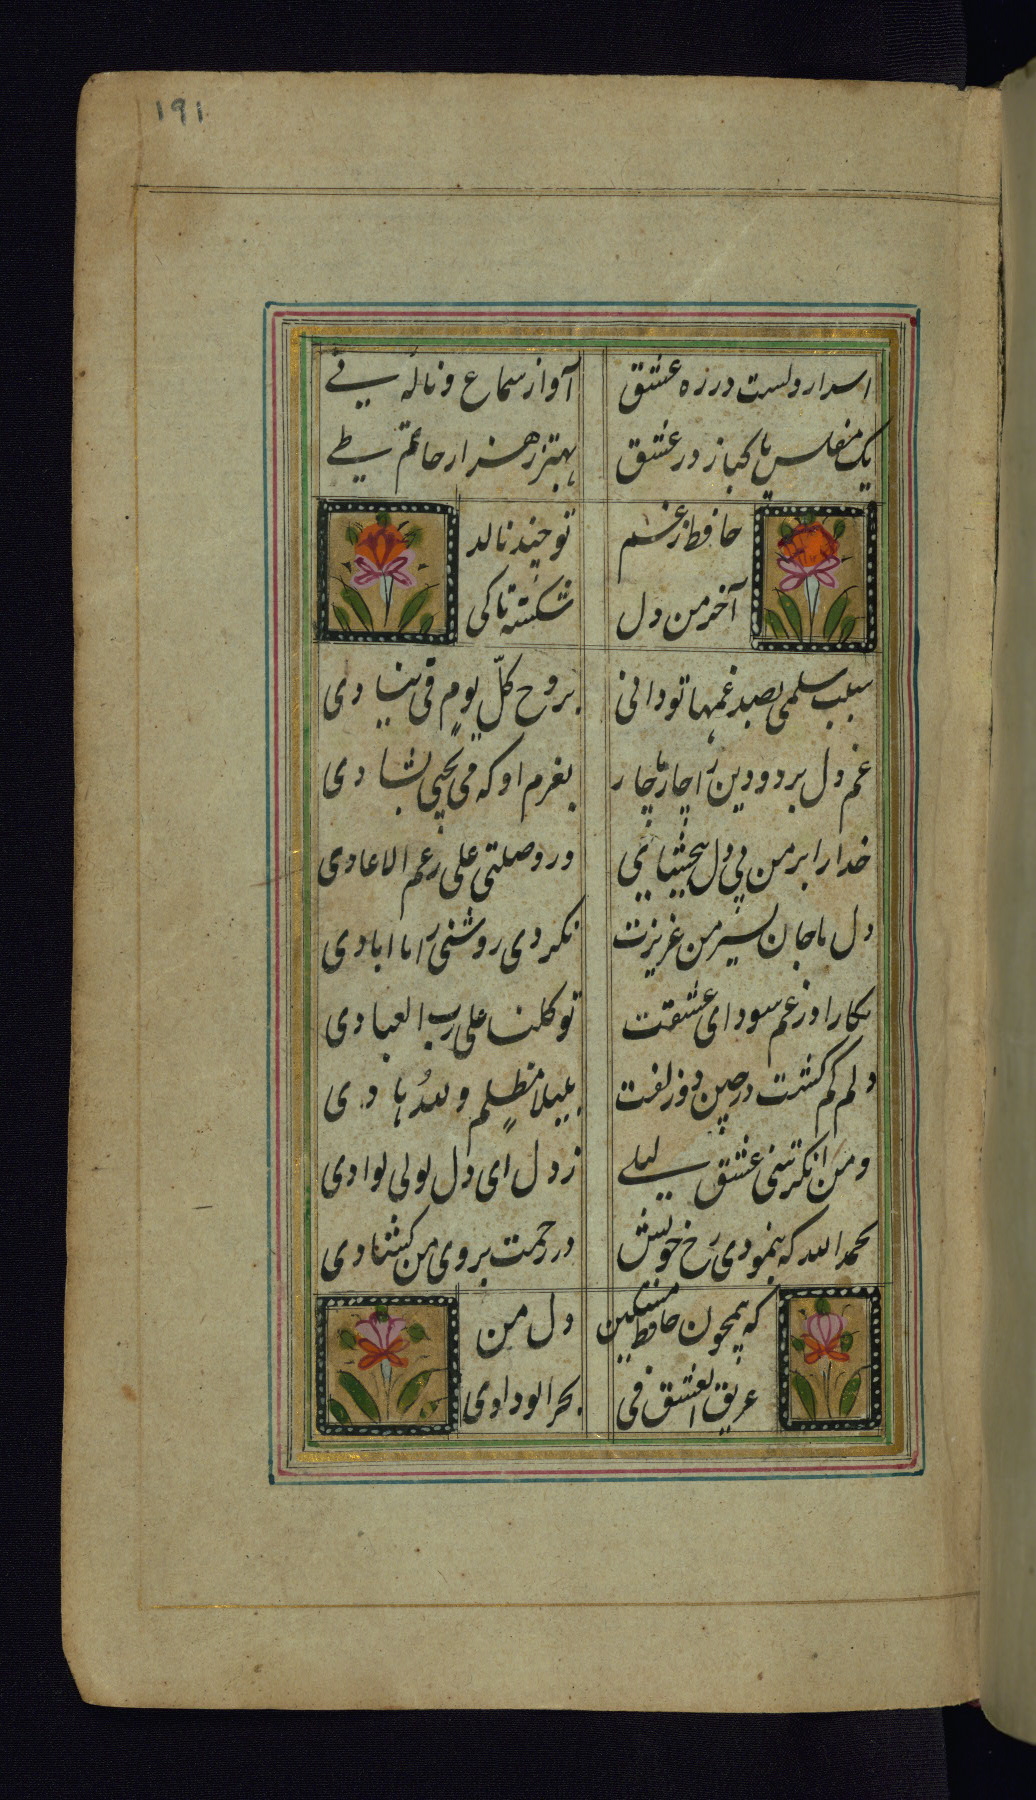 ۱۹۱
اسرار دلست در ره عشق آواز سماع و نالهٔ نی
یک مفلس پاکباز در عشق بهتر ز هزار حاتم طی
حافظ ز غم تو چند نالد
آخر من دل شکسته تا کی
سبت سلمی بصدغیها فؤادی و روحی کل یوم لی ینادی
غم دل برد و دین را چار ناچار بغرم او که می بشادی
خدا را بر من بی دل ببخشای و وصلتی علی رغم الاعادی
دل ما جان من غریزت نکردی روشنی
نگارا در غم سودای عشقت توکلنا علی رب العبادی
دلم گم گشت در چین دو زلفت بلیلا مظلم والله هادی
و من انکرتنی عشق لیلی ز دل ای دل لولی لوادی
بحمد الله که بنمودی رخ خویش در رحمت بروی من گشادی
که همچون حافظ مسکین دل من
غریق العشق فی بحر الودادی